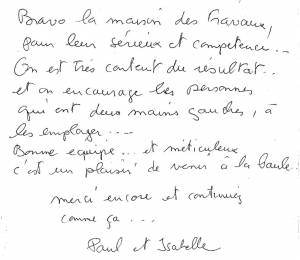 Bravo la maison des travaux,
pour leur sérieux et compétence...
On est très content du résultat..
et on encourage les personnes
qui ont deux mains gauches, à
les employer....
Bonne équipe... et méticuleux
c'est un plaisir de venir à la Baule.
merci encore et continuez
comme ça...
Paul et Isabelle